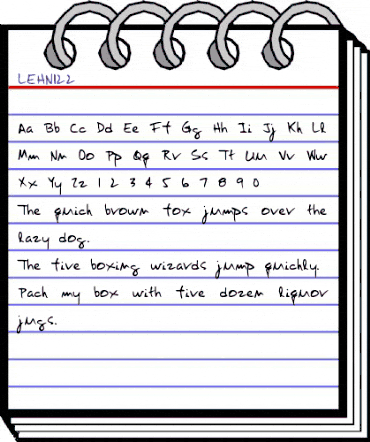 LEHN122
Aa Bb Cc Dd Ee Ff Gg Hh Ii Jj Kk Ll
Mm Nn Oo Pp Qq Rr Ss Tt Uu Vv Ww
Xx Yy Zz 1 2 3 4 5 6 7 8 9 0
The quick brown fox jumps over the
lazy dog.
The five boxing wizards jump quickly.
Pack my box with five dozen liquor
jugs.